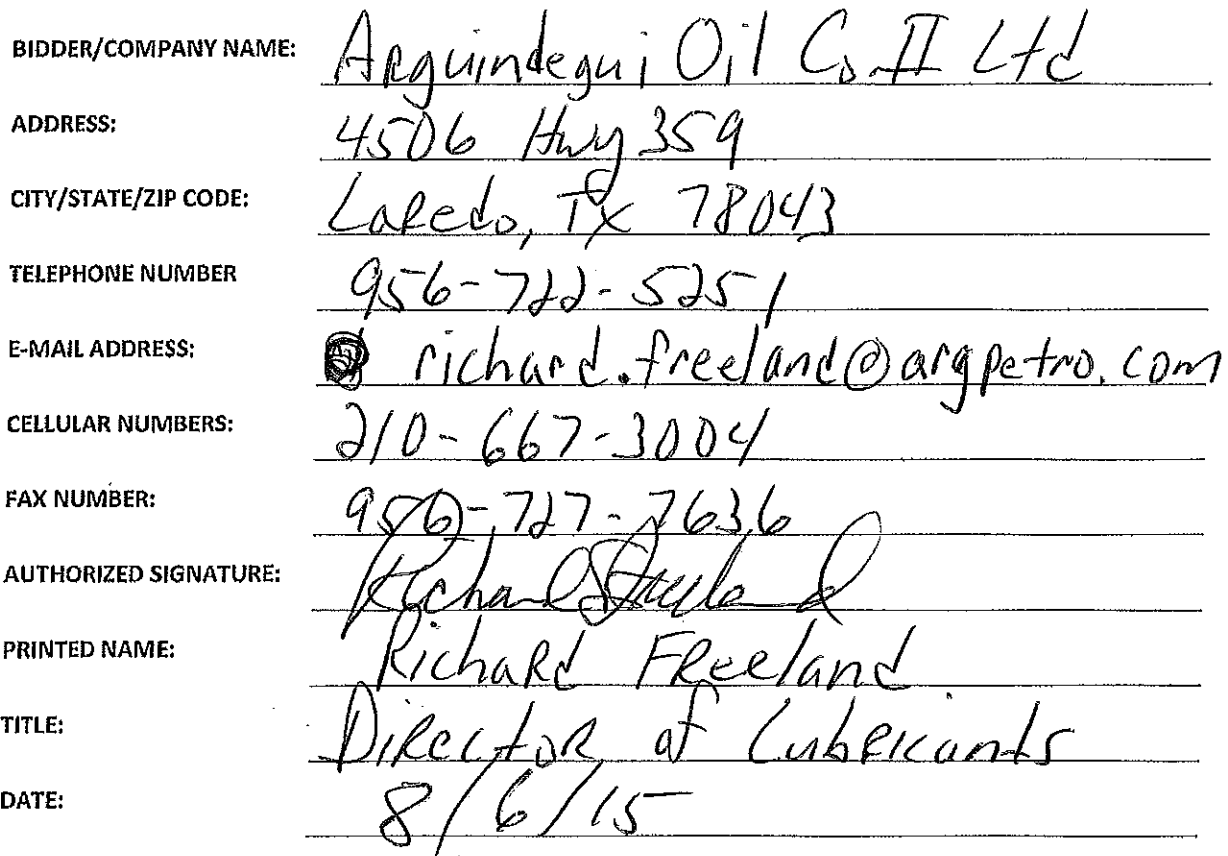 BIDDER/COMPANY NAME: Arguindegui Oil Co II Ltd
ADDRESS: 4506 Hwy 359
CITY/STATE/ZIP CODE: Laredo, Tx 78043
TELEPHONE NUMBER 956-722-5251
E-MAIL ADDRESS: richard.freeland@argpetro.com
CELLULAR NUMBERS: 210-667-3004
FAX NUMBER: 956-727-7636
AUTHORIZED SIGNATURE: Richard Freeland
PRINTED NAME: Richard Freeland
TITLE: Director of Lubricants
DATE: 8/6/15